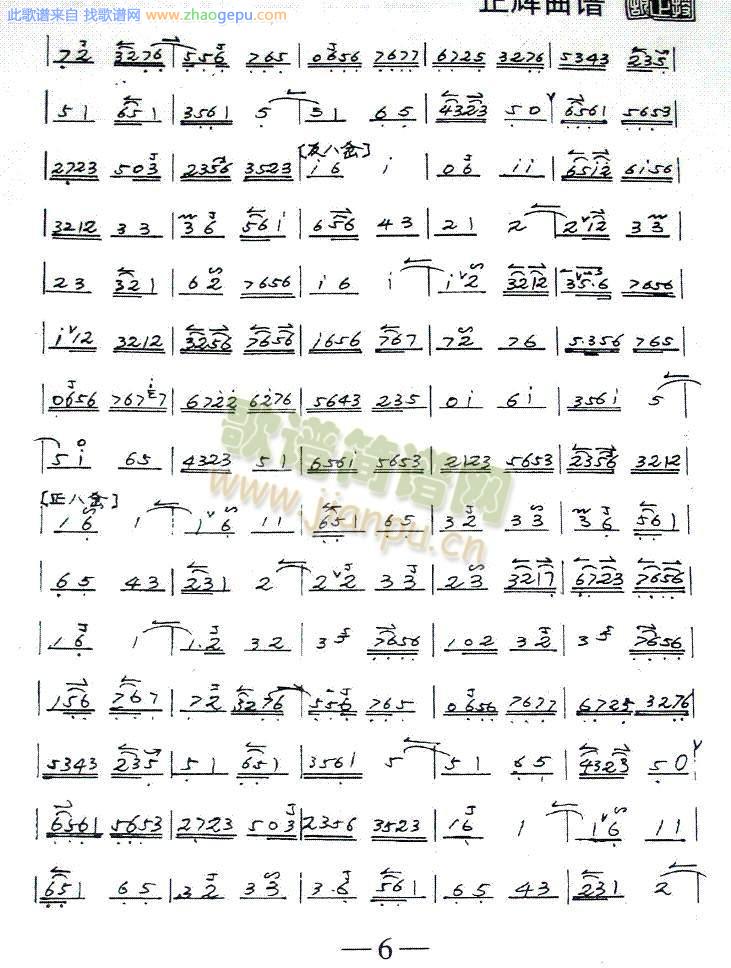 此歌谱来自 找歌谱网
www.zhaogepu.com
正辉曲谱
72 3276 | 556 765 | 0656 7677 | 6725 3276 | 5343 235 |
51 651 | 3561 5 | 51 65 | 4323 50 | 6561 5653 |
[反八岔]
2723 503 | 2356 3523 | i6 i | 06 ii | 65i2 6i56 |
3212 33 | 36 56i | 656 43 | 21 2 | 212 33 |
23 321 | 62 7656 | i6 i | i2 3212 | 35·6 7656 |
i12 3212 | 3256 7656 | i656 767 | 72 76 | 5·356 765 |
0656 7677 | 6722 6276 | 5643 235 | 0i 6i | 356i 5 |
5i 65 | 4323 51 | 656i 5653 | 2123 5653 | 2356 3212 |
[正八岔]
16 1 | 16 11 | 651 65 | 32 33 | 36 561 |
65 43 | 231 2 | 22 33 | 23 3217 | 6723 7656 |
16 1 | 1·2 32 | 35 7656 | 102 32 | 35 7656 |
156 767 | 72 3276 | 556 765 | 0656 7677 | 6725 3276 |
5343 235 | 51 651 | 3561 5 | 51 65 | 4323 50 |
6561 5653 | 2723 503 | 2356 3523 | 16 1 | 16 11 |
651 65 | 32 33 | 3·6 561 | 65 43 | 231 2 |
歌谱简谱网
www.jianpu.cn
—6—